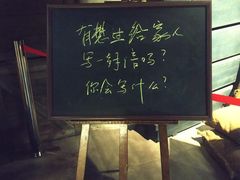 有想过给家人
写一封信吗?
你会写什么?